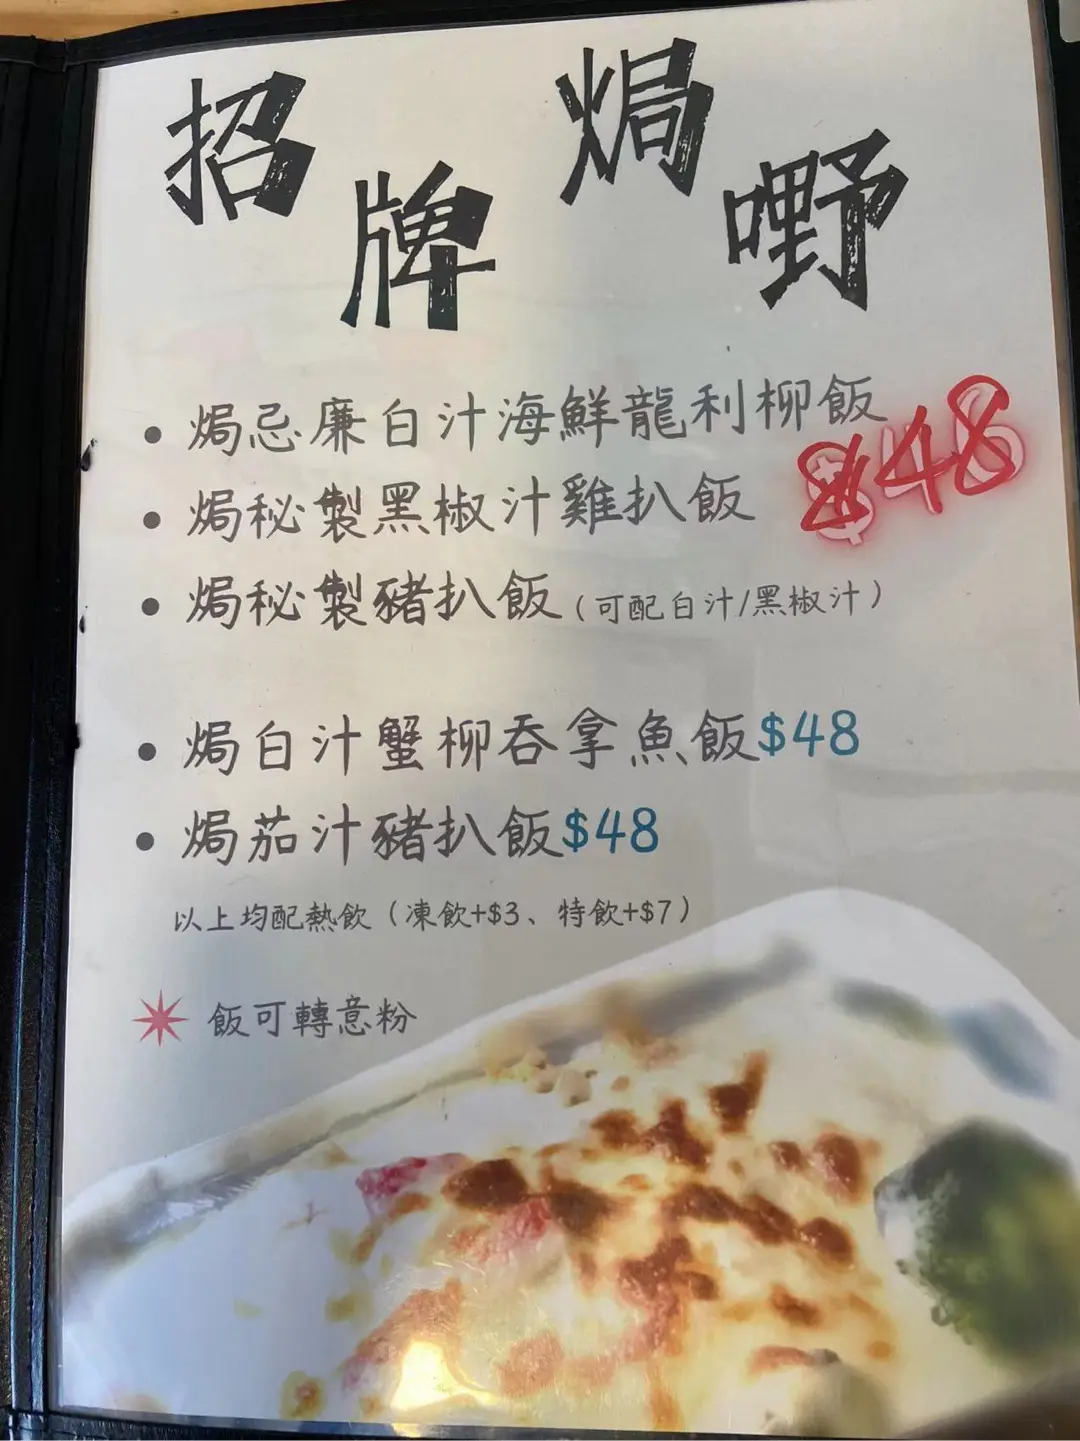 招牌焗嘢
焗忌廉白汁海鮮龍利柳飯
$48
焗秘製黑椒汁雞扒飯
焗秘製豬扒飯（可配白汁/黑椒汁）
焗白汁蟹柳吞拿魚飯$48
焗茄汁豬扒飯$48
以上均配熱飲（凍飲+$3、特飲+$7）
飯可轉意粉